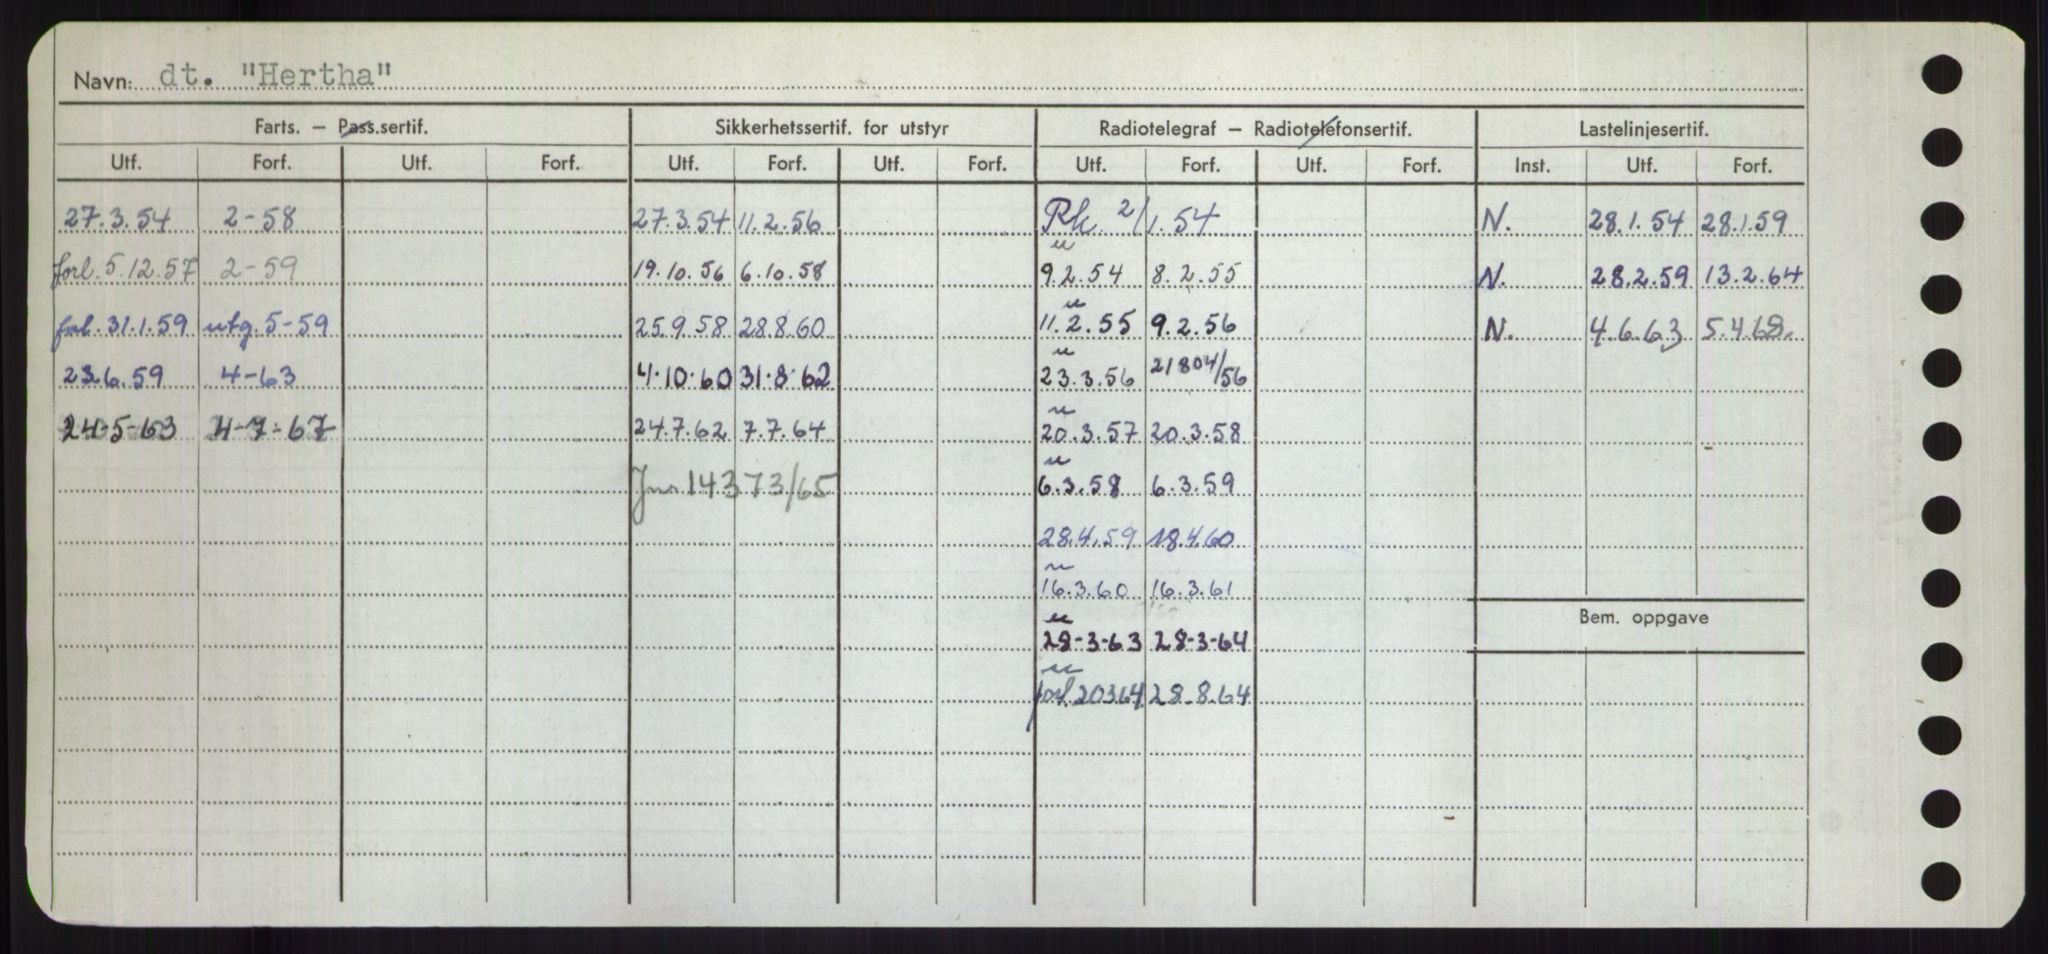 Navn: dt. "Hertha"
Farts. – Pass.sertif. Sikkerhetssertif. for utstyr Radiotelegraf – Radiotelefonsertif. Lastelinjesertif.
Utf. Forf. Utf. Forf. Utf. Forf. Utf. Forf. Utf. Forf. Utf. Forf. Inst. Utf. Forf.
27.3.54 2-58 27.3.54 11.2.56 Rk. 2/1.54 N. 28.1.54 28.1.59
forl. 5.12.57 2-59 19.10.56 6.10.58 " 9.2.54 8.2.55 N. 28.2.59 13.2.64
forl. 31.1.59 utg. 5-59 25.9.58 28.8.60 " 11.2.55 9.2.56 N. 4.6.63 5.4.68.
23.6.59 4-63 4.10.60 31.8.62 " 23.3.56 21804/56
24-5-63 4-7-67 24.7.62 7.7.64 " 20.3.57 20.3.58
Jnr 14373/65 " 6.3.58 6.3.59
28.4.59 18.4.60
" 16.3.60 16.3.61
Bem. oppgave
" 28-3-63 28-3-64
" forl. 20364 28.8.64